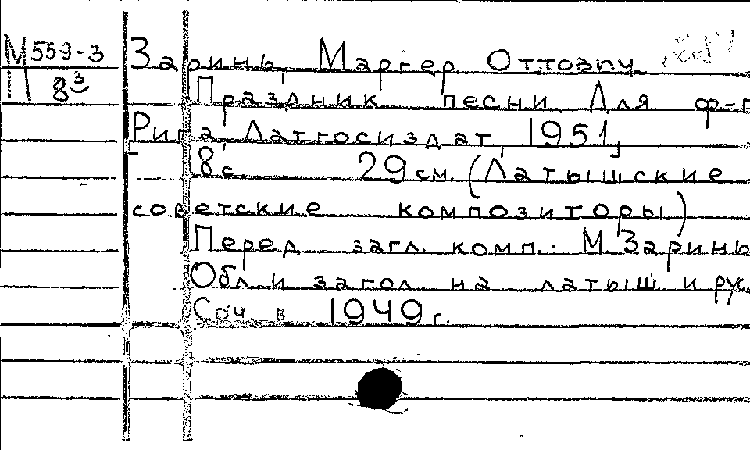 М 559-3
П 8³
Заринь, Маргер Оттович
Праздник песни. Для ф-п
Рига, Латгосиздат, 1951,
8 с. 29 см. (Латышские
советские композиторы)
Перед загл. комп.: М. Заринь
Обл. и загол. на латыш. и рус
Соч. в 1949 г.